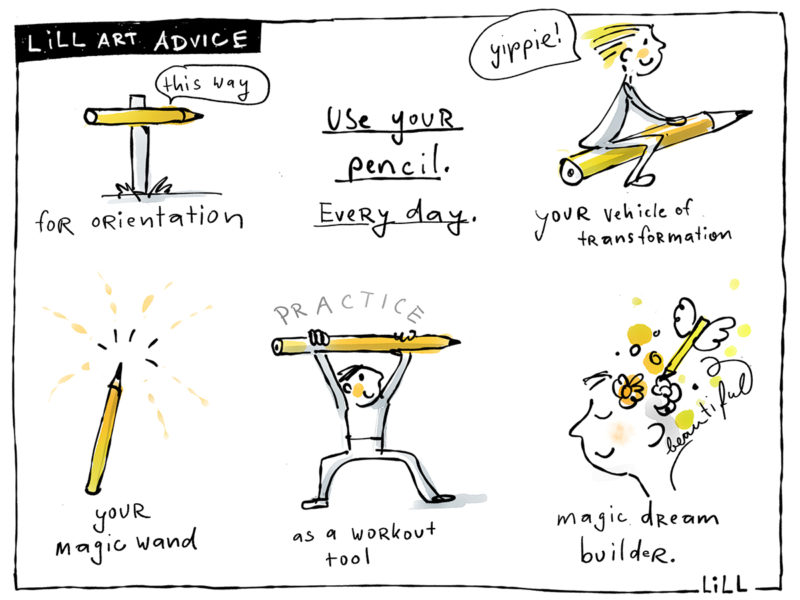 LiLL ART ADVICE
this way
for orientation
Use your
pencil.
Every day.
yippie!
your vehicle of
transformation
your
magic wand
PRACTICE
as a workout
tool
beautiful
magic dream
builder.
LiLL